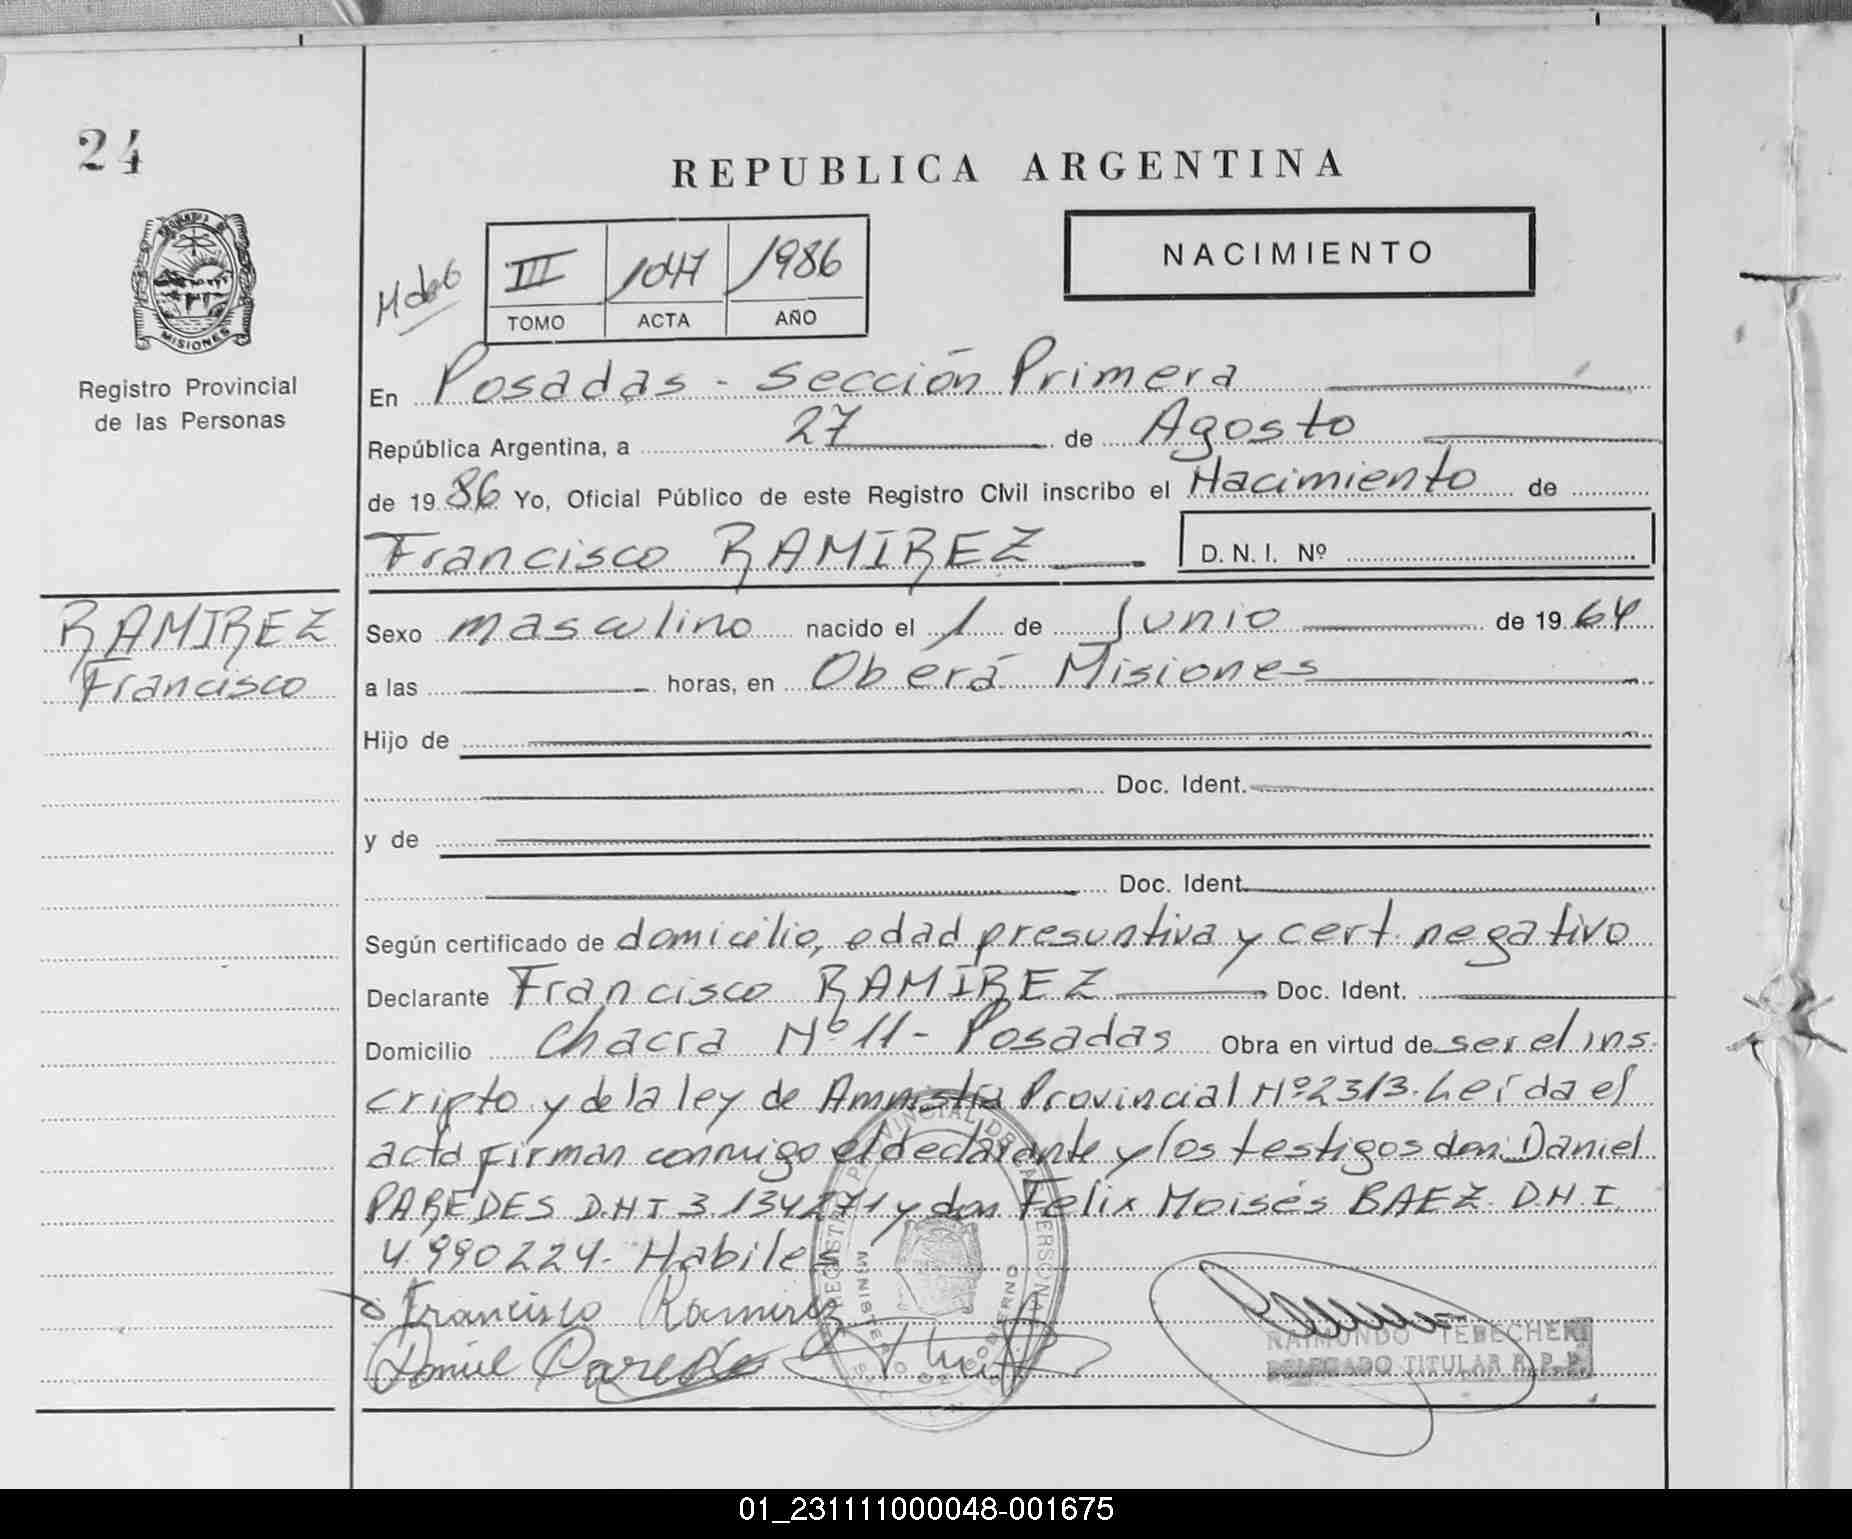 24
REPUBLICA ARGENTINA
III 1047 1986
TOMO ACTA AÑO
NACIMIENTO
MISIONES
Registro Provincial
de las Personas
En Posadas - Sección Primera
República Argentina, a 27 de Agosto
de 1986 Yo, Oficial Público de este Registro Civil inscribo el Nacimiento de
Francisco RAMIREZ D. N. I. Nº
RAMIREZ
Francisco
Sexo masculino nacido el 1 de Junio de 1964
a las horas, en Oberá Misiones
Hijo de
Doc. Ident.
y de
Doc. Ident.
Según certificado de domicilio, edad presuntiva y cert. negativo
Declarante Francisco RAMIREZ Doc. Ident.
Domicilio Chacra Nº 11 - Posadas Obra en virtud de ser el ins
cripto y de la ley de Amnistia Provincial Nº 2313. Leída el
acta firman conmigo el declarante y los testigos don: Daniel
PAREDES D.N.I 3.134271 y don Felix Moisés BAEZ. D.N.I.
4.990224- Habiles
Francisco Ramirez
Daniel Paredes
RAIMUNDO TEBECHERI
DELEGADO TITULAR R. P. P.
01_231111000048-001675